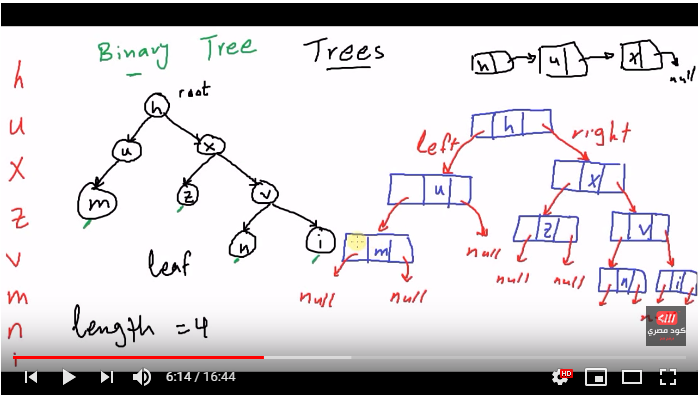 Binary Tree Trees
h
u
x
z
v
m
n
i
h root
u x
m z v
n i
leaf
length = 4
n u x null
h
left right
u x
m null z v
null null null null n i
كود مصري
6:14 / 16:44
HD